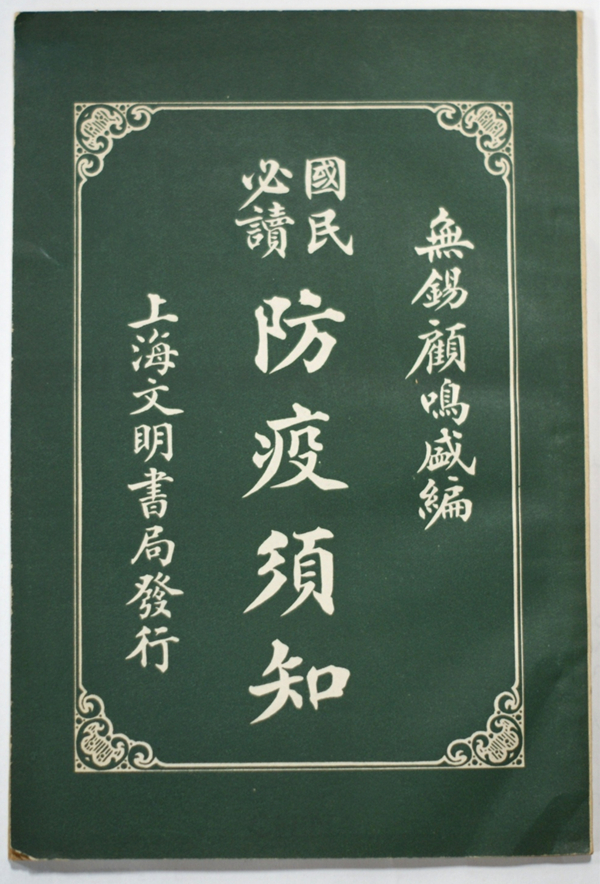 無錫顧鳴盛編
國民
必讀
防疫須知
上海文明書局發行